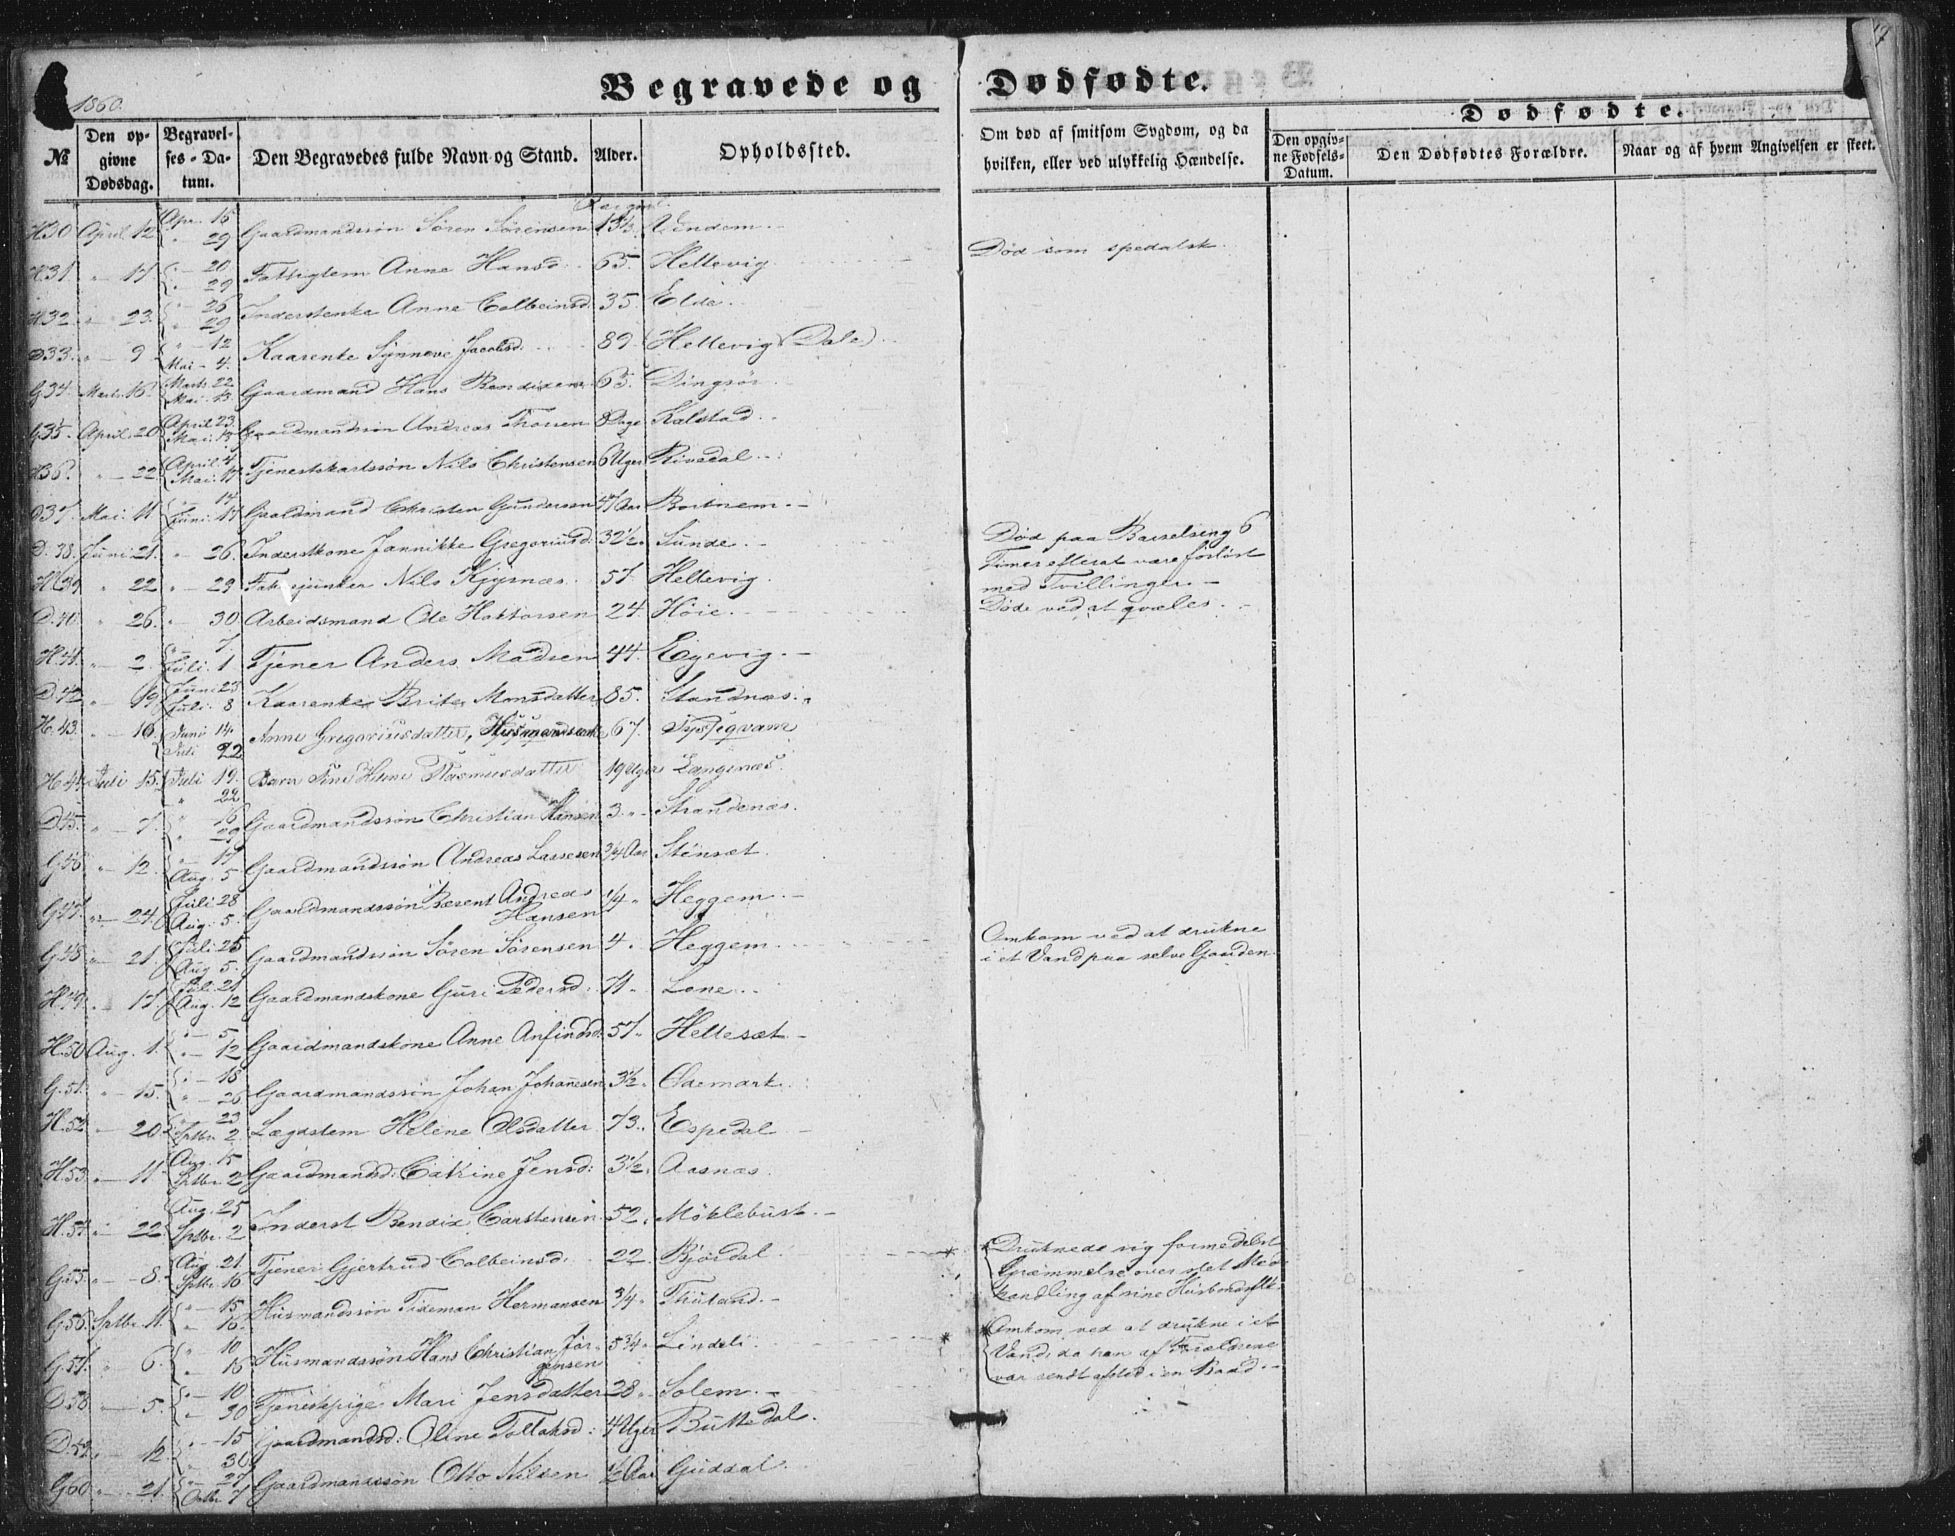 Begravede og Dødfødte.
1860.
Dødfødte.
№ Den op-givne Dødsdag. Begravel-ses-Da-tum. Den Begravedes fulde Navn og Stand. Alder. Opholdssted. Om død af smitsom Sygdom, og da hvilken, eller ved ulykkelig Hændelse. Den opgiv-ne Fødsels-Datum. Den Dødfødtes Forældre. Naar og af hvem Angivelsen er skeet.
H30 April 12 Apr. 15 " 29 Gaardmandssøn Søren Sørensen Vindem.
H31 " 17 " 20 " 29 Fattiglem Anne Hansd. 65. Hellevig Død som spedalsk.
H32 " 23. " 26 " 29 Inderstenke Anne Colbeinsd. 35 Elde.
D33. " 9 " 12 Mai 4. Kaarenke Synneve Jacobsd. 89. Hellevig (Dale)
G34. Marts 16. Marts 22 Mai 13. Gaardmand Hans Bendixen 65. Dingsør
G35. April 20 April 23. Mai. 13 Gaardmandssøn Andreas Thorsen 8 Dage Kalstad
H36. " 22 April 4. Mai. 17 Tjenestkarlssøn Nils Christensen 6 Uger Rivedal
D37. Mai. 11 " 14 Juni 17 Gaardmand Christen Gundersen 47 Aar Bortnem.
D. 38. Juni 21. " 26. Inderstkone Jannikke Gregoriusd. 32½. Sunde. Død paa Barselseng 6 Timer efterat være forløst med Tvillinger.
H39 " 22 " 29 Nils Kjyrnæs. 57. Hellevig.
D. 40. " 26. " 30 Arbeidsmand Ole Haktorsen 24. Høie. Døde ved at qvæles.
H. 41. " 2. " 7. Juli. 1 Tjener Anders Madsen 44. Eyevig.
D. 42 " 19 Juni 23 Juli. 8 Kaarenke Brite Monsdatter 85. Standnæs.
H. 43. " 10. Juni 14. Juli 22 Anne Gregoriusdatter, Husmandsenke 67. Tysseqvam
H. 44. Juli 15. Juli 19. " 22 Barn Ane Helene Rasmusdatter 19 Uger Langenæs.
D45. " 7. " 16 " 29 Gaardmandssøn Christian Hansen 3. Strandenæs.
G46 " 12. " 17 Aug. 5 Gaardmandssøn Andreas Lassesen ¾ Aar Stensæt.
G47. " 24. Juli 28 Aug. 5. Gaardmandssøn Berent Andreas Hansen ¼ Heggem.
G48 " 21. Juli 25 Aug 5. Gaardmandssøn Søren Sørensen 4. Heggem. Omkom ved at drukne i et Vand paa selve Gaarden.
H49. " 17. Juli. 21 Aug. 12 Gaardmandskone Guri Pedersd. 71. Lone.
H. 50 Aug. 1. " 5 " 12 Gaardmandskone Anne Anfindsd. 57. Hellesæt
G. 51. " 15. " 18 " 26 Gaardmandssøn Johan Johanesen 3½. Odemark
H. 52 " 20. " 23 Sptbr. 2 Lægdslem Helene Olsdatter 73. Espedal
H. 53. " 11. Aug. 15 Sptbr. 2 Gaardmandsd. Catrine Jensd: 3½. Aasnæs.
H. 54. " 22. Aug. 25 Sptbr. 2 Inderst Bendix Carstensen 52. Møklebust.
G55. " 8. Aug. 21. Sptbr. 16 Tjener Gjertrud Colbeinsd. 22. Bjørdal. * Druknede sig formedelst Græmmelse over slet Medhandling af sine Husbondsfolk.
G56. Sptbr. 11. " 15 " 16. Husmandssøn Tideman Hermansen ¾ Thuland.
G57. " 6. " 10 " 16 Husmandssøn Hans Christian Jørgensen 5¾ Lindeli * Omkom ved at drukne i et Vand, da han af Forældrene var sendt afsted i en Baad.
D58. " 5. " 10 " 30 Tjenestpige Mari Jensdatter 28. Solem.
D. 59. " 12. " 15 " 30. Gaardmandsd: Oline Tollaksd: 4 Uger Buttedal.
G60 " 21. " 27 Octbr. 7 Gaardmandssøn Otto Nilsen ½ Aar Guddal.